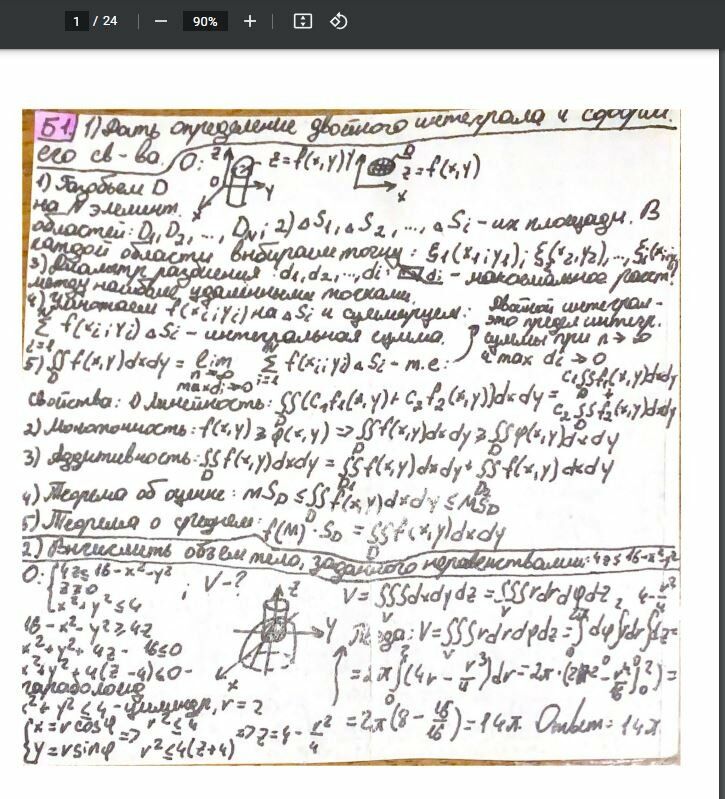 1 / 24 90%
Б1 1) Дать определение двойного интеграла и сформ.
его св-ва. О: z z=f(x,y) y D z=f(x,y)
0 y x
1) Разобьем D x
на N элемент.
областей: D₁, D₂, ..., D_N; 2) ΔS₁, ΔS₂, ..., ΔSᵢ - их площади. В
каждой области выбираем точку: ξ₁(x₁;y₁);
3) Диаметр разбиения: d₁, d₂, ..., dᵢ: dᵢ - максимальное расст.
между наиболее удаленными точками.
4) f(xᵢ;yᵢ) на ΔSᵢ и суммируем:
Σ f(xᵢ;yᵢ)ΔSᵢ - интегральная сумма.
i=1
Двойной интеграл-
это предел интегр.
суммы при n→∞
и max dᵢ→0
5) ∬f(x,y)dxdy = lim Σ f(xᵢ;yᵢ)ΔSᵢ - т.е.
D n→∞ i=1
max dᵢ→0
Свойства: 1) Линейность: ∬(C₁f₁(x,y)+C₂f₂(x,y))dxdy = C₁∬f₁(x,y)dxdy + C₂∬f₂(x,y)dxdy
2) Монотонность: f(x,y)≥φ(x,y) => ∬f(x,y)dxdy ≥ ∬φ(x,y)dxdy
3) Аддитивность: ∬f(x,y)dxdy = ∬f(x,y)dxdy + ∬f(x,y)dxdy
D D₁ D₂
4) Теорема об оценке: mS_D ≤ ∬f(x,y)dxdy ≤ MS_D
5) Теорема о среднем: f(M)·S_D = ∬f(x,y)dxdy
2) Вычислить объем тело, заданного неравенствами: 4z≤16-x²-y²
О: {4z≤16-x²-y²
z≥0 ; V-?
x²+y²≤4
16-x²-y²≥4z
x²+y²+4z-16≤0
x²+y²+4(z-4)≤0-
параболоид
x²+y²≤4 - цилиндр, r=2
{x=rcosφ => r²≤4 => z=4-r²/4
y=rsinφ r²≤4(z+4)
z y x
V=∭dxdydz=∭rdrdφdz,
Тогда: V=∭rdrdφdz=∫dφ∫dr∫dz=
=2π∫(4r-r³/4)dr=2π·
=2π(8-16/16)=14π Ответ: 14π